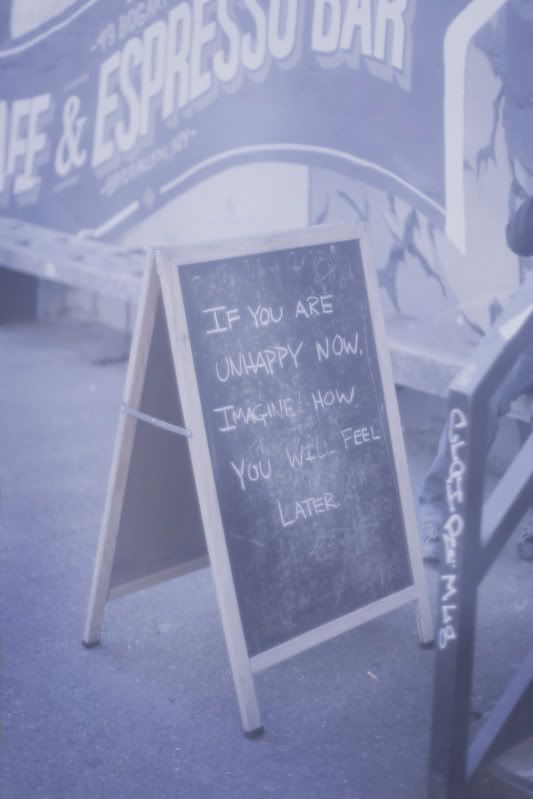 -79 BOGART
AFE & ESPRESSO BAR
BROOKLYN, NY-
IF YOU ARE
UNHAPPY NOW,
IMAGINE HOW
YOU WILL FEEL
LATER.